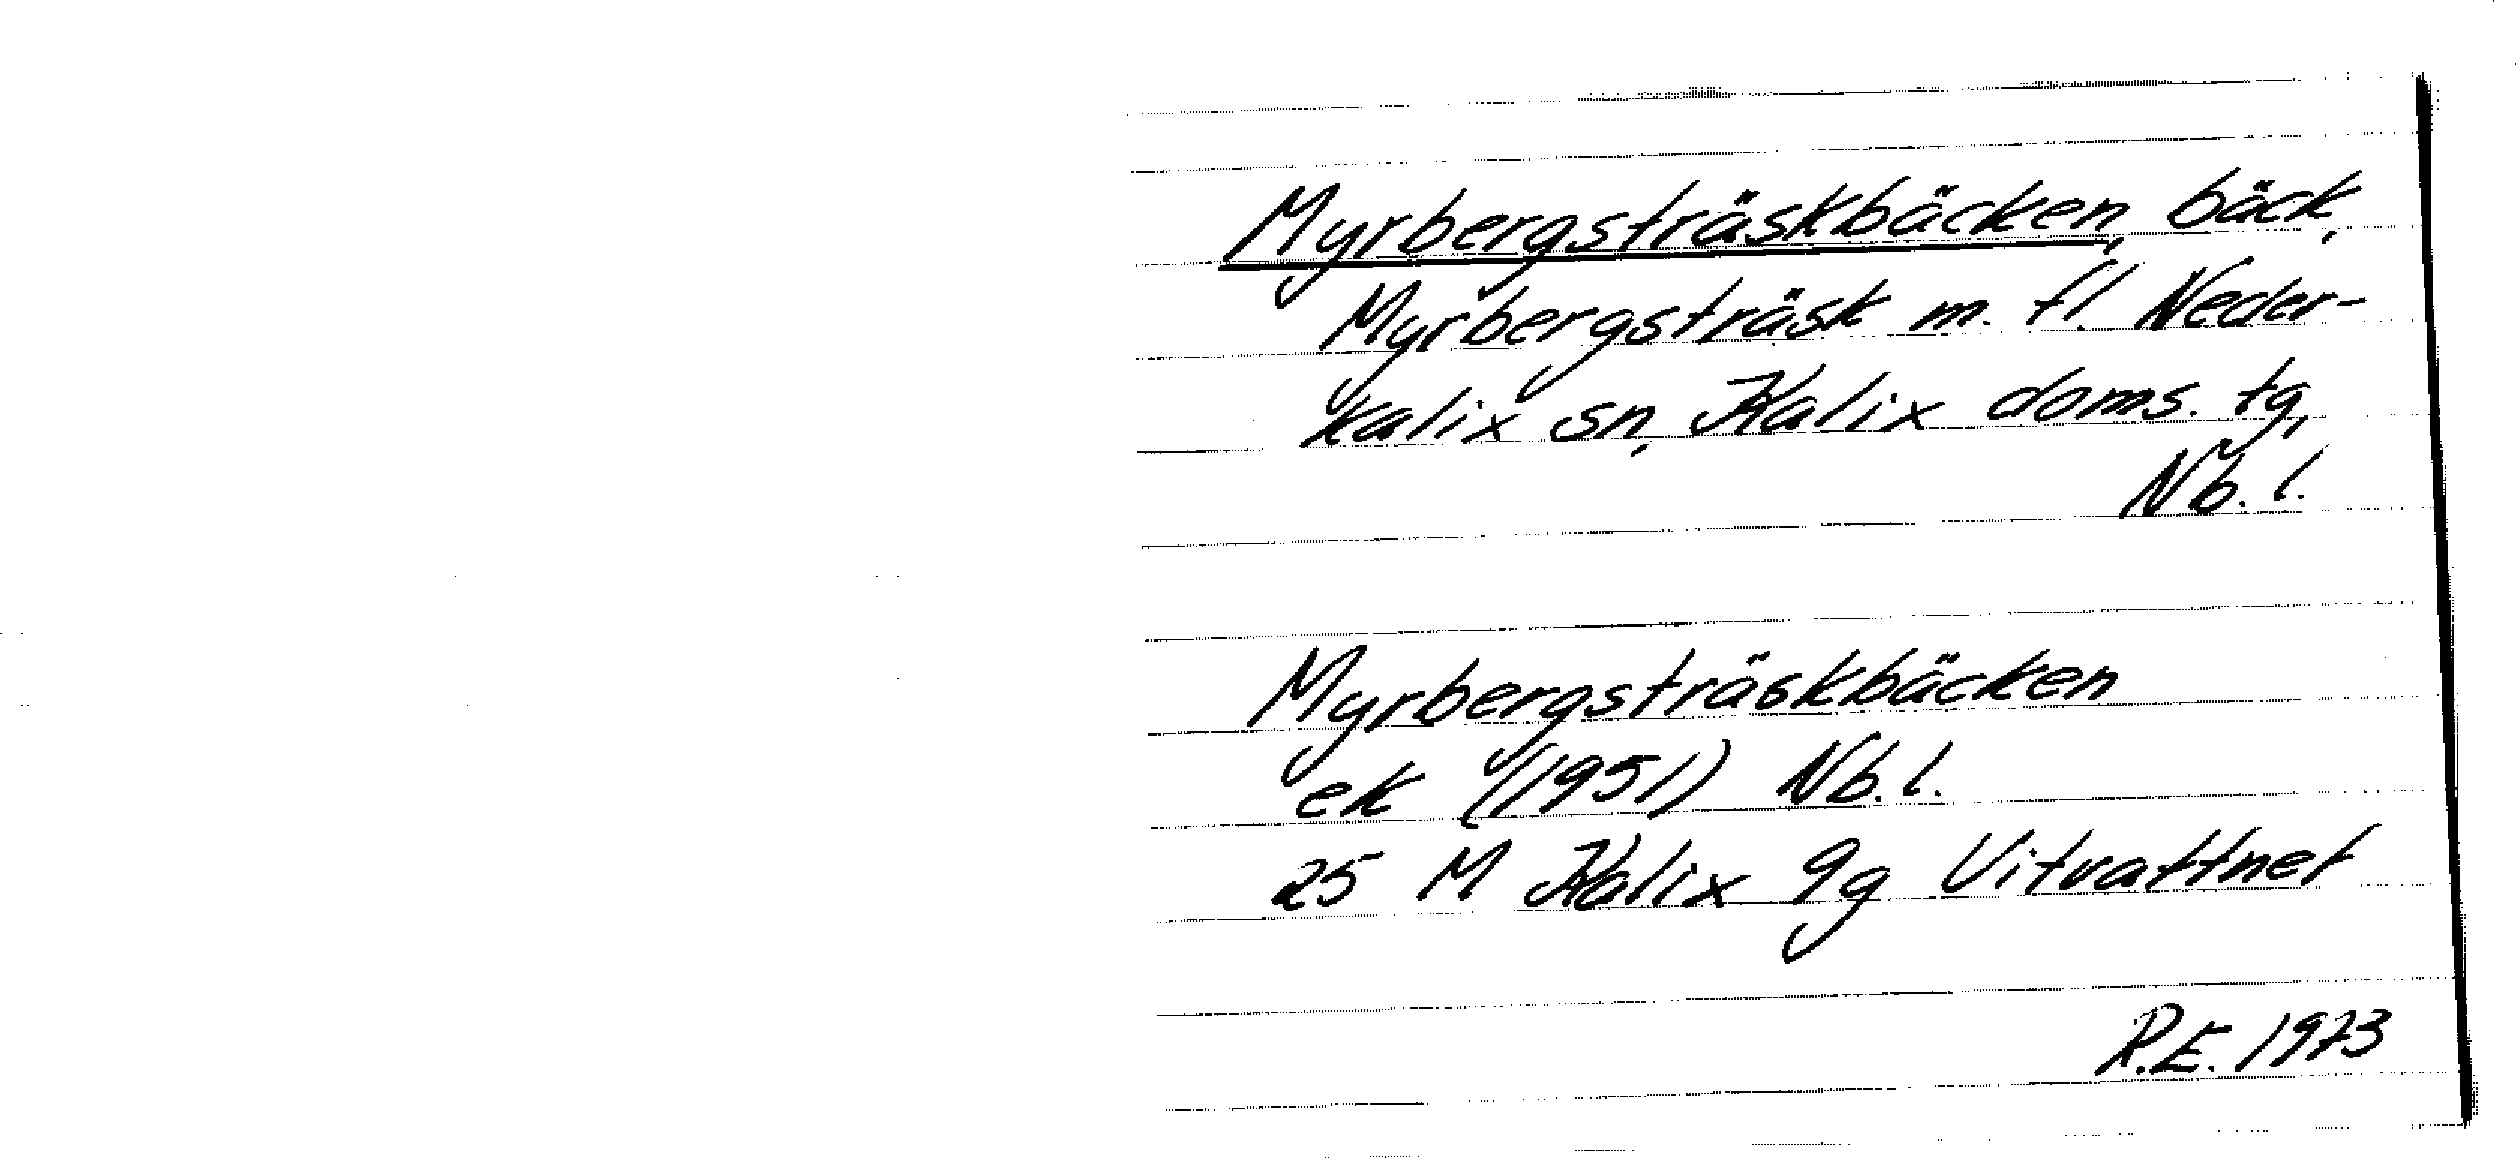 Myrbergsträskbäcken, bäck,
Myrbergsträsk m. fl. Neder-
kalix sn, Kalix doms. tg,
Nb. l.
Myrbergsträskbäcken
ek (1951) Nb. l.
25 M Kalix 9g Vitvattnet
R.E. 1973